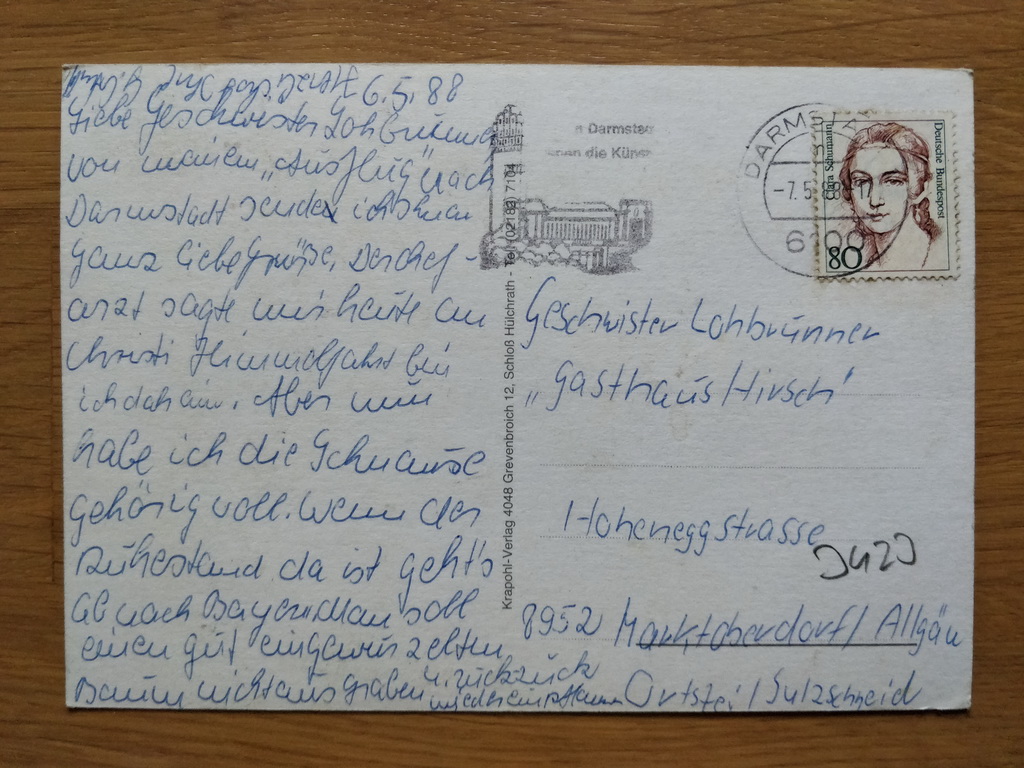 6.5.88
Liebe Geschwister Lohbrunner
von meinem „Ausflug" nach
Darmstadt sende ich Ihnen
ganz liebe Grüße, Der Chef-
arzt sagte mir heute an
Christi Himmelfahrt bin
ich daheim. Aber nun
habe ich die Schnauze
gehörig voll. Wenn der
Ruhestand da ist geht's
ab nach Bayern. Man soll
einen gut eingewurzelten
Baum nicht ausgraben u. zurück
wiedereinpflanzen
Krapohl-Verlag 4048 Grevenbroich 12, Schloß Hülchrath - Tel. (02182) 7104
n Darmstad
die Küns
DARMSTA
-7.5.8
6100
Clara Schumann
Deutsche Bundespost
80
Geschwister Lohbrunner
„Gasthaus Hirsch"
Hoheneggstrasse
8952 Marktoberdorf/Allgäu
Ortsteil Sulzschneid